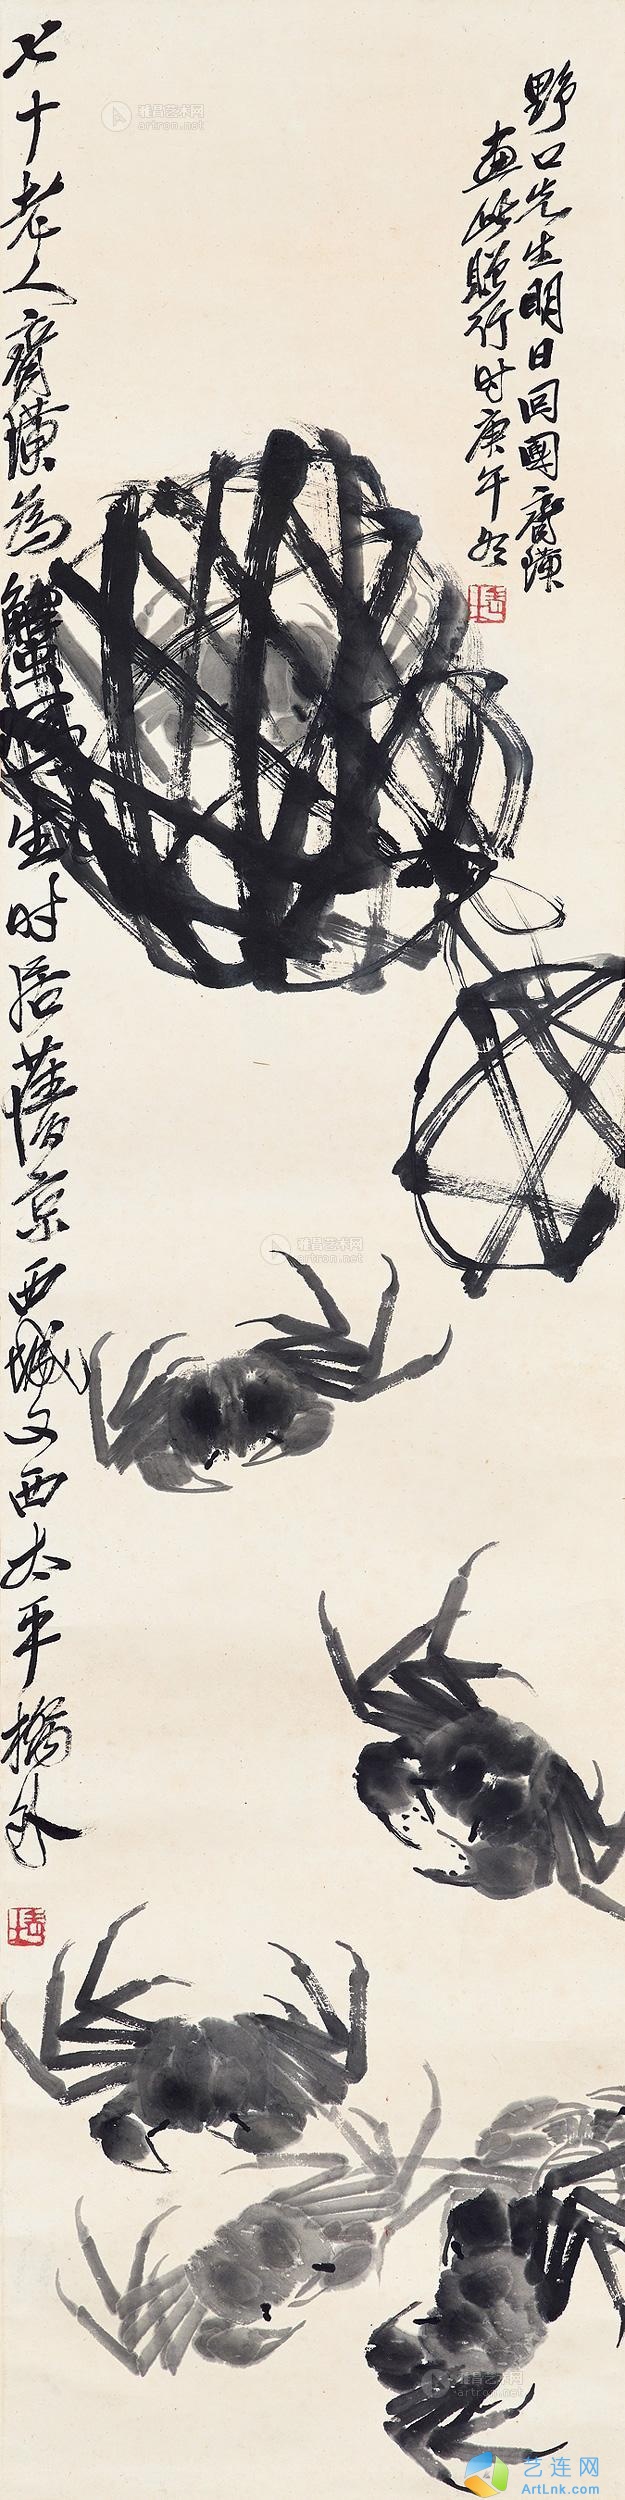 野口先生明日回國齊璜
畫此贈行时庚午冬
七十老人齊璜为蟹寫生时居舊京西城又西太平橋外
雅昌艺术网
artron.net
雅昌艺术网
artron.net
雅昌艺术网
artron.net
艺连网
ArtLnk.com